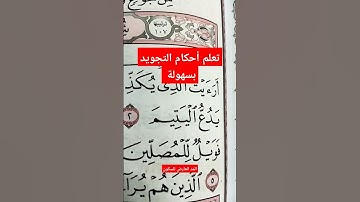 تعلم أحكام التجويد
بسهولة
أَرَءَيْتَ ٱلَّذِى يُكَذِّ
يَدُعُّ ٱلْيَتِيمَ ٢
فَوَيْلٌ لِّلْمُصَلِّينَ
المد العارض للسكون
٥ ٱلَّذِينَ هُمْ يُرَآ